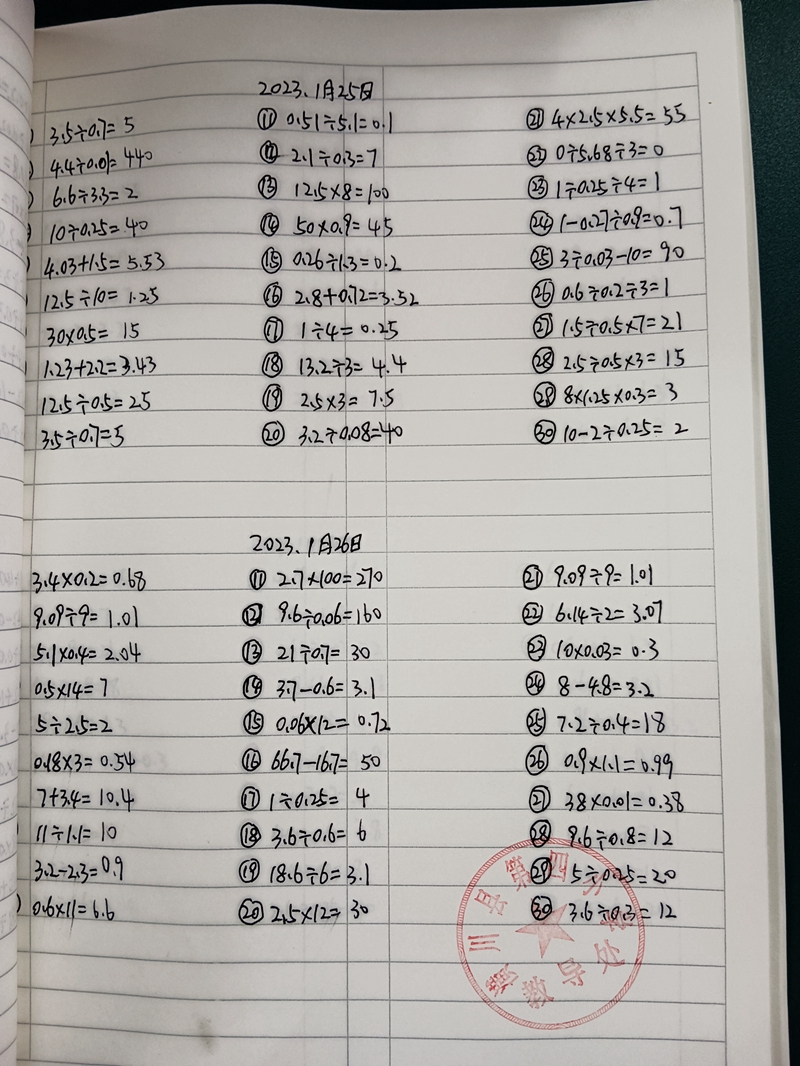 2023.1月25日
3.5÷0.7=5
4.4÷0.01=440
6.6÷3.3=2
10÷0.25=40
4.03+1.5=5.53
12.5÷10=1.25
30×0.5=15
1.23+2.2=3.43
12.5÷0.5=25
3.5÷0.7=5
⑪ 0.51÷5.1=0.1
⑫ 2.1÷0.3=7
⑬ 12.5×8=100
⑭ 50×0.9=45
⑮ 0.26÷1.3=0.2
⑯ 2.8+0.72=3.52
⑰ 1÷4=0.25
⑱ 13.2÷3=4.4
⑲ 2.5×3=7.5
⑳ 3.2÷0.08=40
㉑ 4×2.5×5.5=55
㉒ 0÷5.68÷3=0
㉓ 1÷0.25÷4=1
㉔ 1-0.27÷0.9=0.7
㉕ 3÷0.03-10=90
㉖ 0.6÷0.2÷3=1
㉗ 1.5÷0.5×7=21
㉘ 2.5÷0.5×3=15
㉙ 8×1.25×0.3=3
㉚ 10-2÷0.25=2
2023.1月26日
3.4×0.2=0.68
9.09÷9=1.01
5.1×0.4=2.04
0.5×14=7
5÷2.5=2
0.18×3=0.54
7+3.4=10.4
11÷1.1=10
3.2-2.3=0.9
0.6×11=6.6
⑪ 2.7×100=270
⑫ 9.6÷0.06=160
⑬ 21÷0.7=30
⑭ 3.7-0.6=3.1
⑮ 0.06×12=0.72
⑯ 66.7-16.7=50
⑰ 1÷0.25=4
⑱ 3.6÷0.6=6
⑲ 18.6÷6=3.1
⑳ 2.5×12=30
㉑ 9.09÷9=1.01
㉒ 6.14÷2=3.07
㉓ 10×0.03=0.3
㉔ 8-4.8=3.2
㉕ 7.2÷0.4=18
㉖ 0.9×1.1=0.99
㉗ 38×0.01=0.38
㉘ 9.6÷0.8=12
㉙ 5÷0.25=20
㉚ 3.6÷0.3=12
川县第四小学
教导处